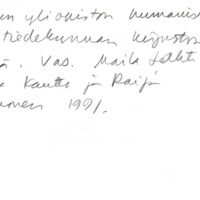 un yliopiston humanis
tiedekunnan kirjasto
ä. Vas. Maila Lehti
Kautto ja Raija
onen 1991.